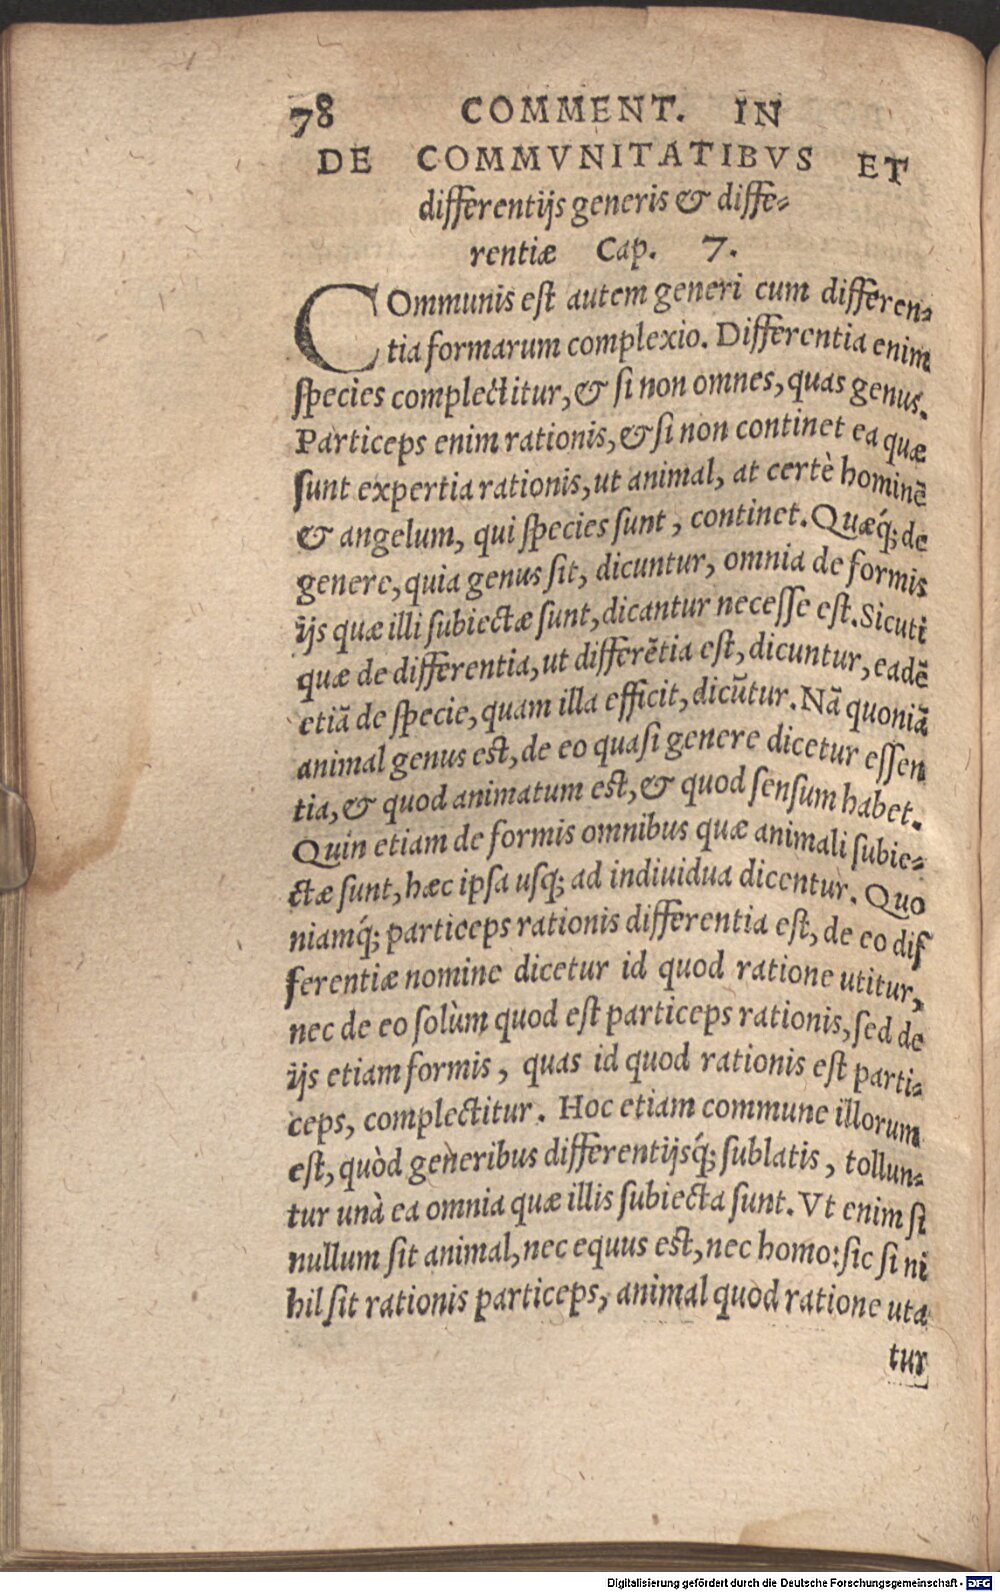 78 COMMENT. IN
DE COMMVNITATIBVS ET
differentijs generis & diffe-
rentiæ Cap. 7.
COmmunis est autem generi cum differen-
tia formarum complexio. Differentia enim
species complectitur, & si non omnes, quas genus.
Particeps enim rationis, & si non continet ea quæ
sunt expertia rationis, ut animal, at certè hominē
& angelum, qui species sunt, continet. Quæq́; de
genere, quia genus sit, dicuntur, omnia de formis
ijs quæ illi subiectæ sunt, dicantur necesse est. Sicuti
quæ de differentia, ut differētia est, dicuntur, eadē
etiā de specie, quam illa efficit, dicūtur. Nā quoniā
animal genus est, de eo quasi genere dicetur essen
tia, & quod animatum est, & quod sensum habet.
Quin etiam de formis omnibus quæ animali subie-
ctæ sunt, hæc ipsa usq; ad indiuidua dicentur. Quo
niamq́; particeps rationis differentia est, de eo dif
ferentiæ nomine dicetur id quod ratione utitur,
nec de eo solùm quod est particeps rationis, sed de
ijs etiam formis, quas id quod rationis est parti-
ceps, complectitur. Hoc etiam commune illorum
est, quòd generibus differentijsq́; sublatis, tollun-
tur unà ea omnia quæ illis subiecta sunt. Vt enim si
nullum sit animal, nec equus est, nec homo: sic si ni
hil sit rationis particeps, animal quod ratione uta
tur
Digitalisierung gefördert durch die Deutsche Forschungsgemeinschaft - DFG